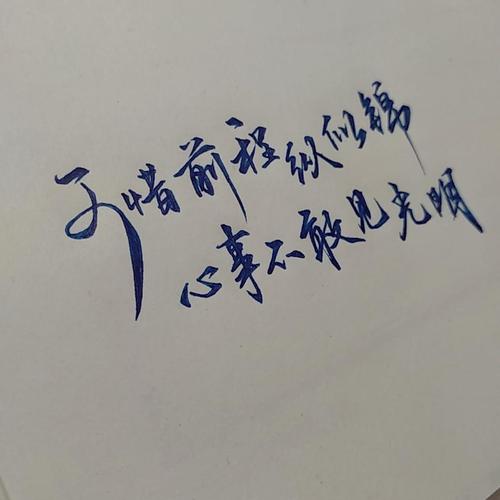 可惜前程纵似锦
心事不敢见光明